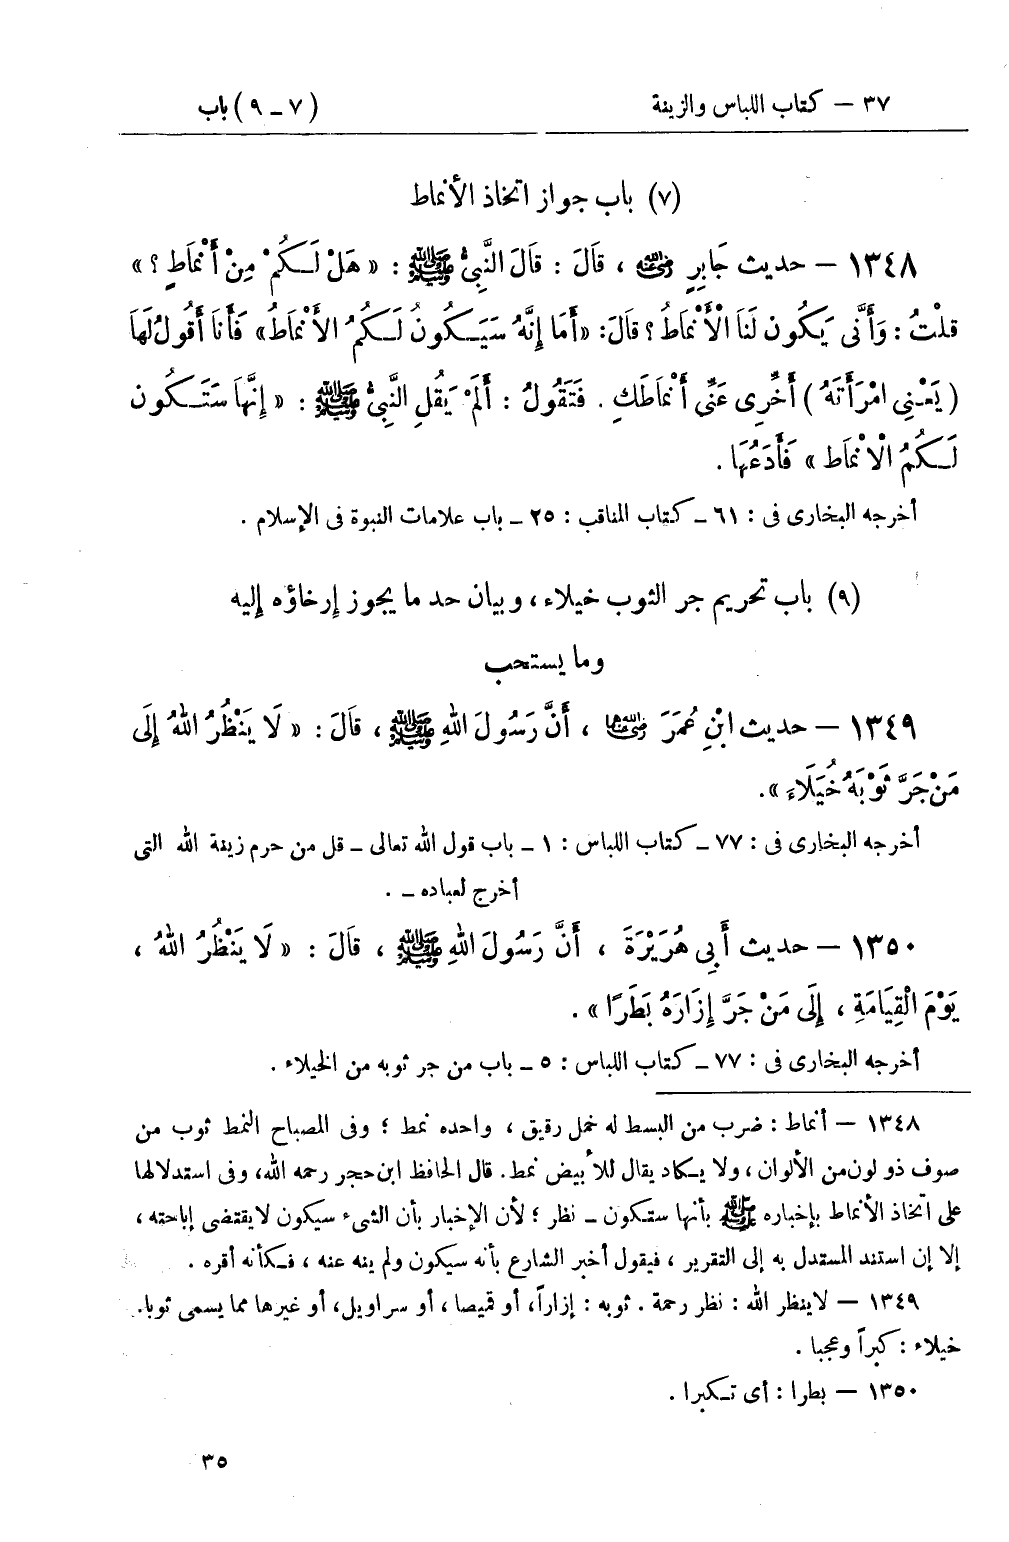 ٣٧ – كتاب اللباس والزينة (٧ ـ ٩) باب
(٧) باب جواز اتخاذ الأنماط
١٣٤٨ – حديث جَابِرٍ رضي الله عنه ، قَالَ : قَالَ النَّبِيُّ ﷺ : « هَلْ لَكُمْ مِنْ أَنْمَاطٍ ؟ »
قلْتُ : وَأَنَّى يَكُون لَنَا الْأَنْمَاطُ ؟ قَالَ: «أَمَا إِنَّهُ سَيَكُونُ لَكُمُ الأَنْمَاطُ» فَأَنَا أَقُولُ لَهَا
( يَعْنِى امْرَأَتَهُ ) أَخِّرِى عَنِّى أَنْمَاطَكِ . فَتَقُولُ : أَلَمْ يَقُلِ النَّبِيُّ ﷺ : « إِنَّهَا سَتَكُون
لَكُمُ الْانْمَاط » فَأَدَعُهَا .
أخرجه البخارى فى : ٦١ ـ كتاب المناقب : ٢٥ ـ باب علامات النبوة فى الإسلام .
(٩) باب تحريم جر الثوب خيلاء ، وبيان حد ما يجوز إرخاؤه إليه
وما يستحب
١٣٤٩ – حديث ابْنِ عُمَرَ رضي الله عنهما ، أَنَّ رَسُولَ اللهِ ﷺ ، قَالَ : « لَا يَنْظُرُ اللهُ إِلَى
مَنْ جَرَّ ثَوْبَهُ خُيَلَاءَ ».
أخرجه البخارى فى : ٧٧ ـ كتاب اللباس : ١ ـ باب قول الله تعالى ـ قل من حرم زينة الله التى
أخرج لعباده ـ .
١٣٥٠ – حديث أَبِى هُرَيْرَةَ ، أَنَّ رَسُولَ اللهِ ﷺ ، قَالَ : « لَا يَنْظُرُ اللهُ ،
يَوْمَ الْقِيَامَةِ ، إِلَى مَنْ جَرَّ إِزَارَهُ بَطَرًا » .
أخرجه البخارى فى : ٧٧ ـ كتاب اللباس : ٥ ـ باب من جر ثوبه من الخيلاء .
١٣٤٨ – أنماط : ضرب من البسط له خمل رقيق ، واحده نمط ؛ وفى المصباح النمط ثوب من
صوف ذو لون من الألوان ، ولا يكاد يقال للأبيض نمط. قال الحافظ ابن حجر رحمه الله، وفى استدلالها
على اتّخاذ الأنماط بإخباره ﷺ بأنها ستكون ـ نظر ؛ لأن الإخبار بأن الشىء سيكون لا يقتضى إباحته ،
إلا إن استند المستدل به إلى التقرير ، فيقول أخبر الشارع بأنه سيكون ولم ينه عنه ، فكأنه أقره .
١٣٤٩ – لا ينظر الله : نظر رحمة . ثوبه : إزاراً، أو قميصا ، أو سراويل، أو غيرها مما يسمى ثوبا.
خيلاء : كبراً وعجبا .
١٣٥٠ – بطرا : أى تكبرا .
٣٥